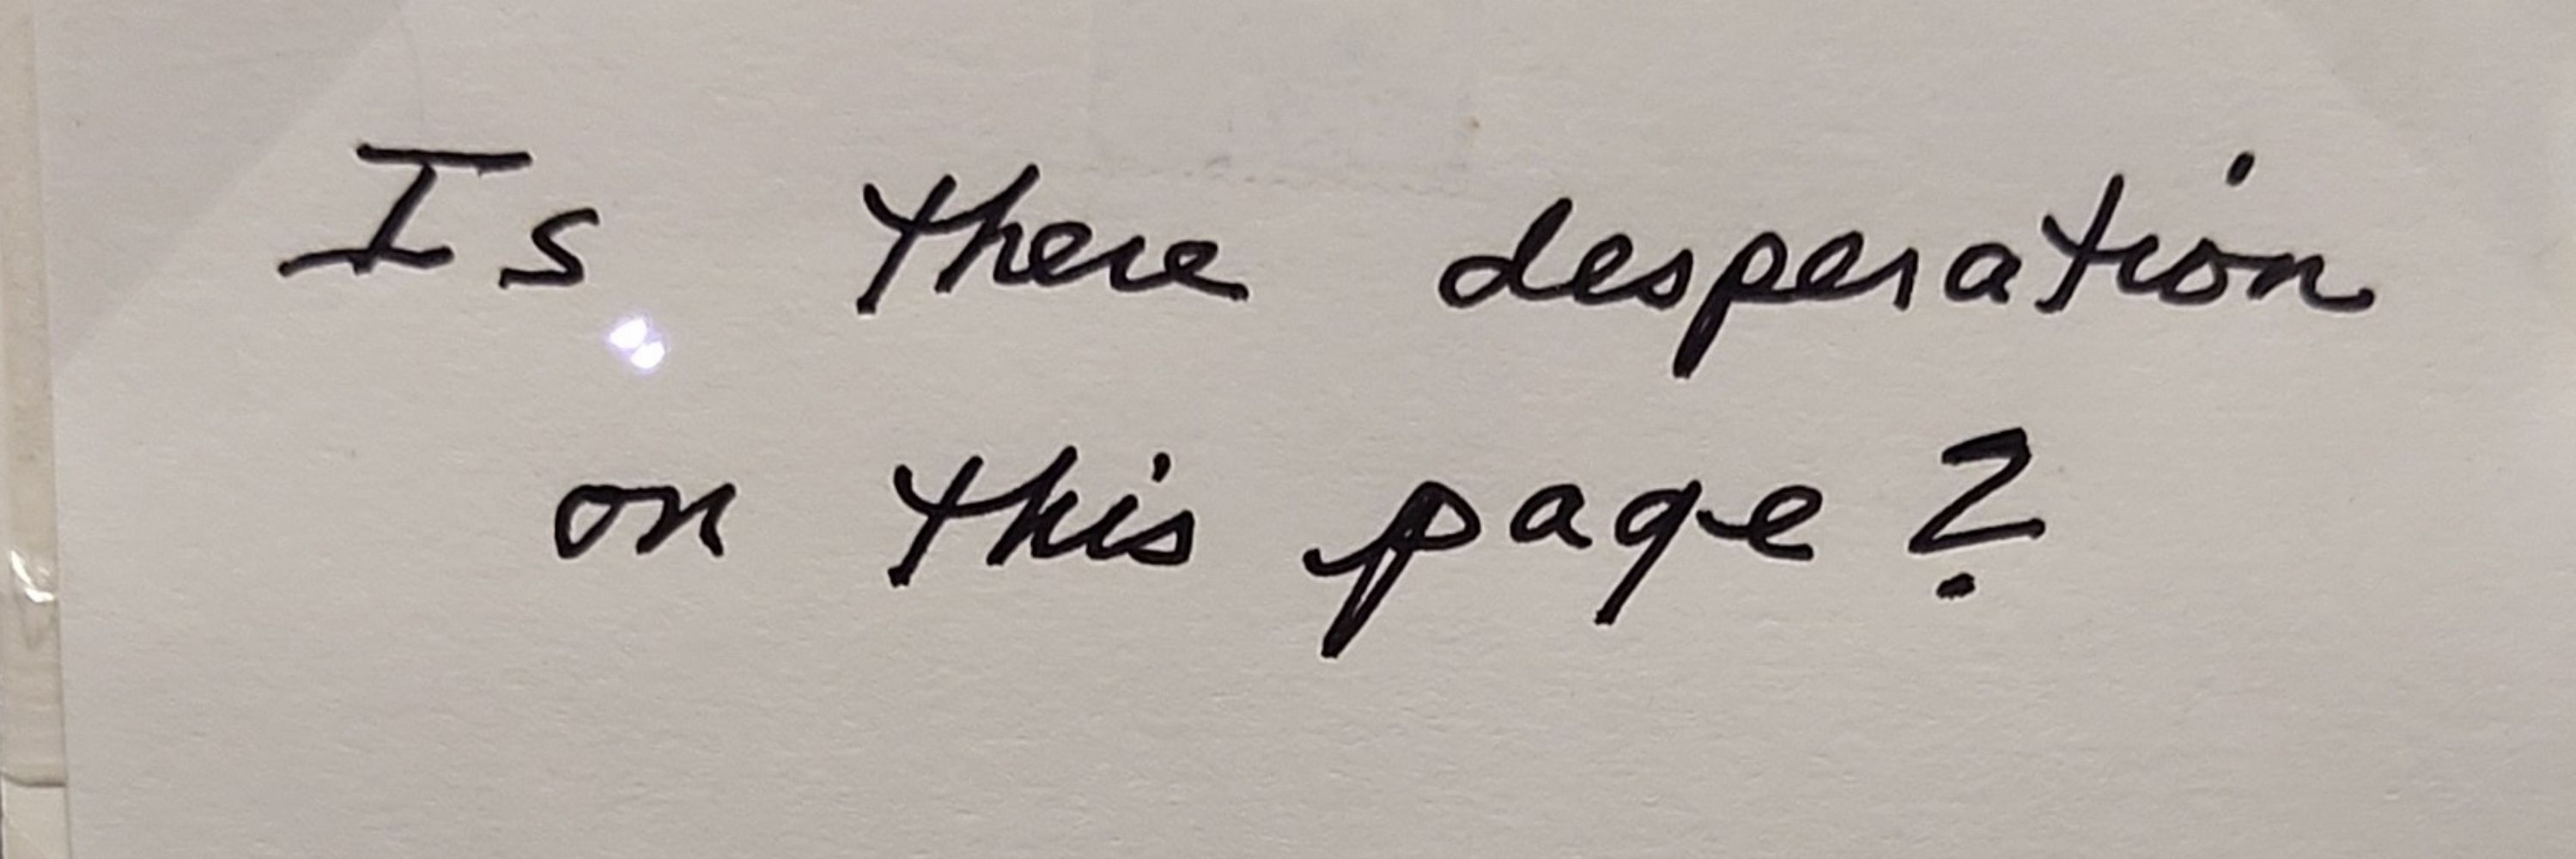 Is there desperation
on this page?